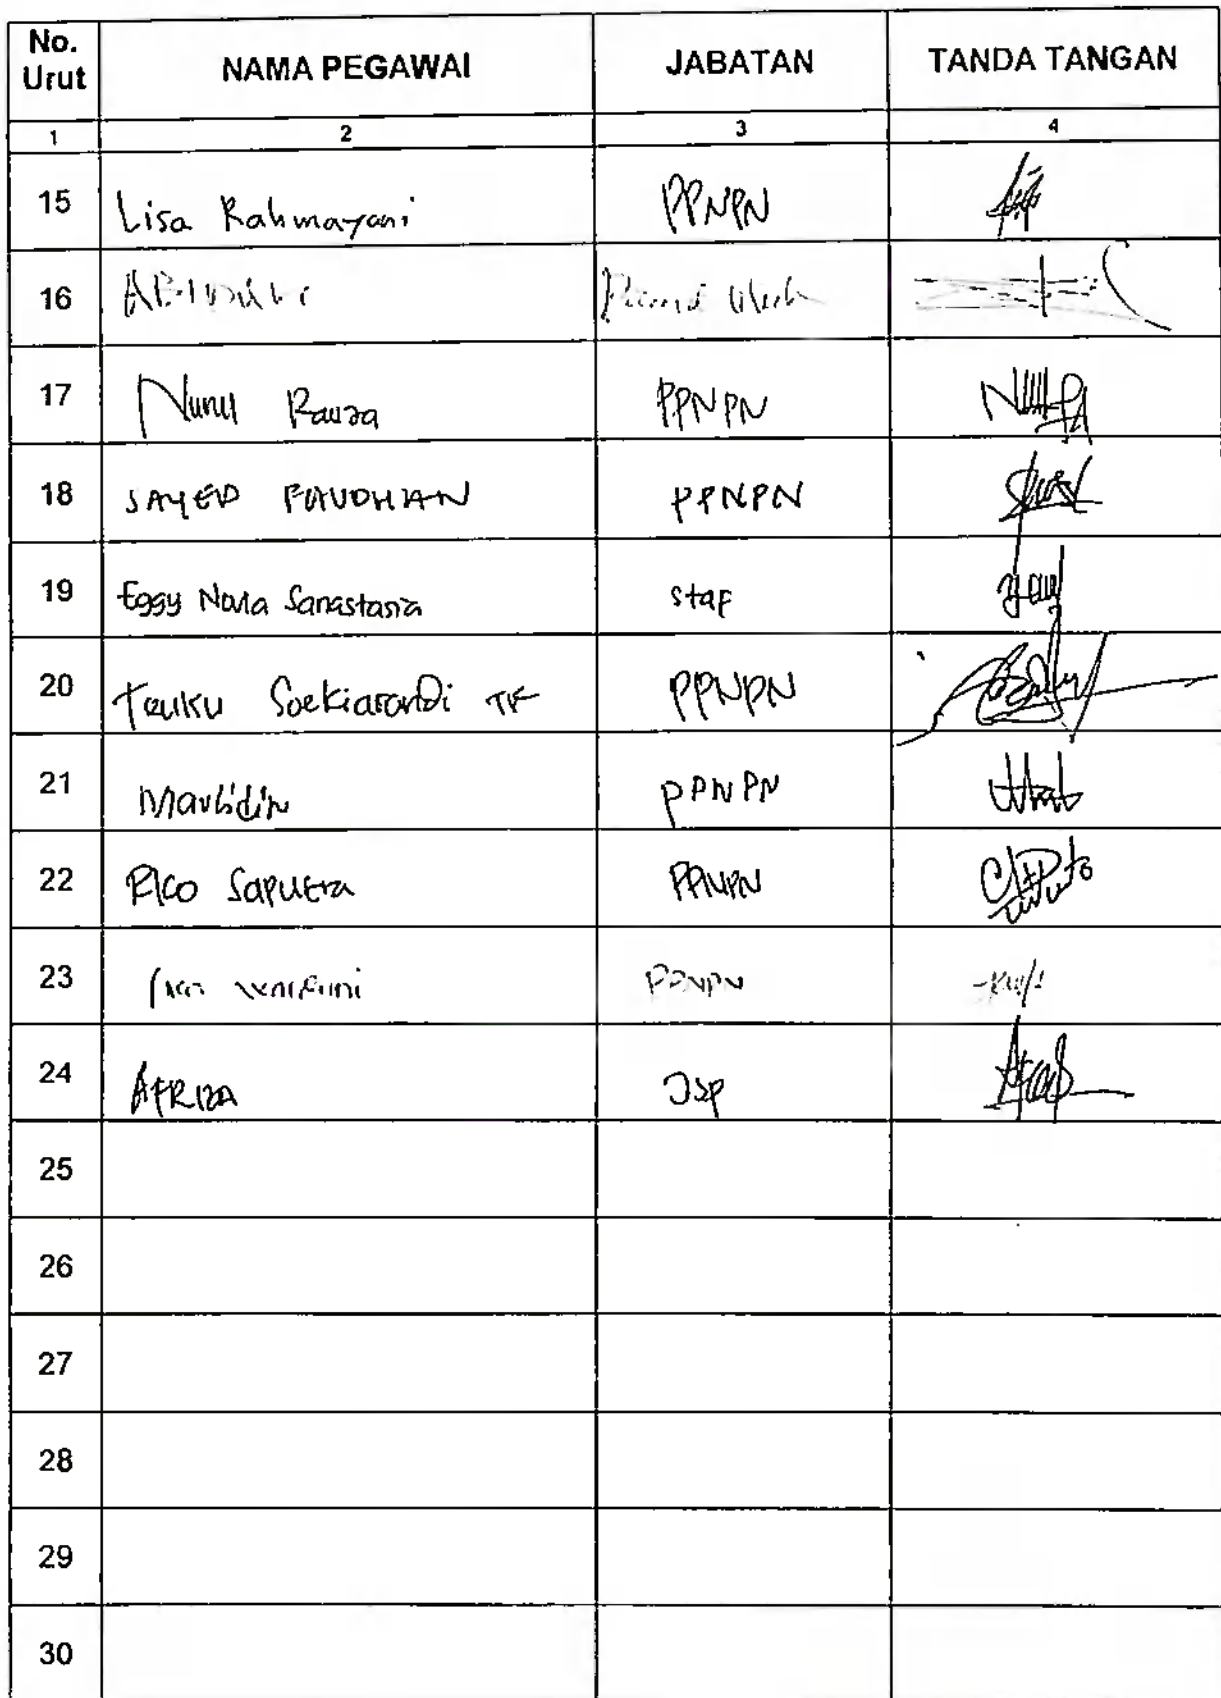 No. Urut NAMA PEGAWAI JABATAN TANDA TANGAN
1 2 3 4
15 Lisa Rahmayani PPNPN
16
17 Nunu Rauza PPNPN
18 SAYED FAUDHIAN PPNPN
19 Eggy Novia Sanastasia staf
20 Teuku Soekiarandi TF PPNPN
21 Maulidin PPNPN
22 Rico Saputra PPNPN
23 PPNPN
24 AFRIZA JSP
25
26
27
28
29
30